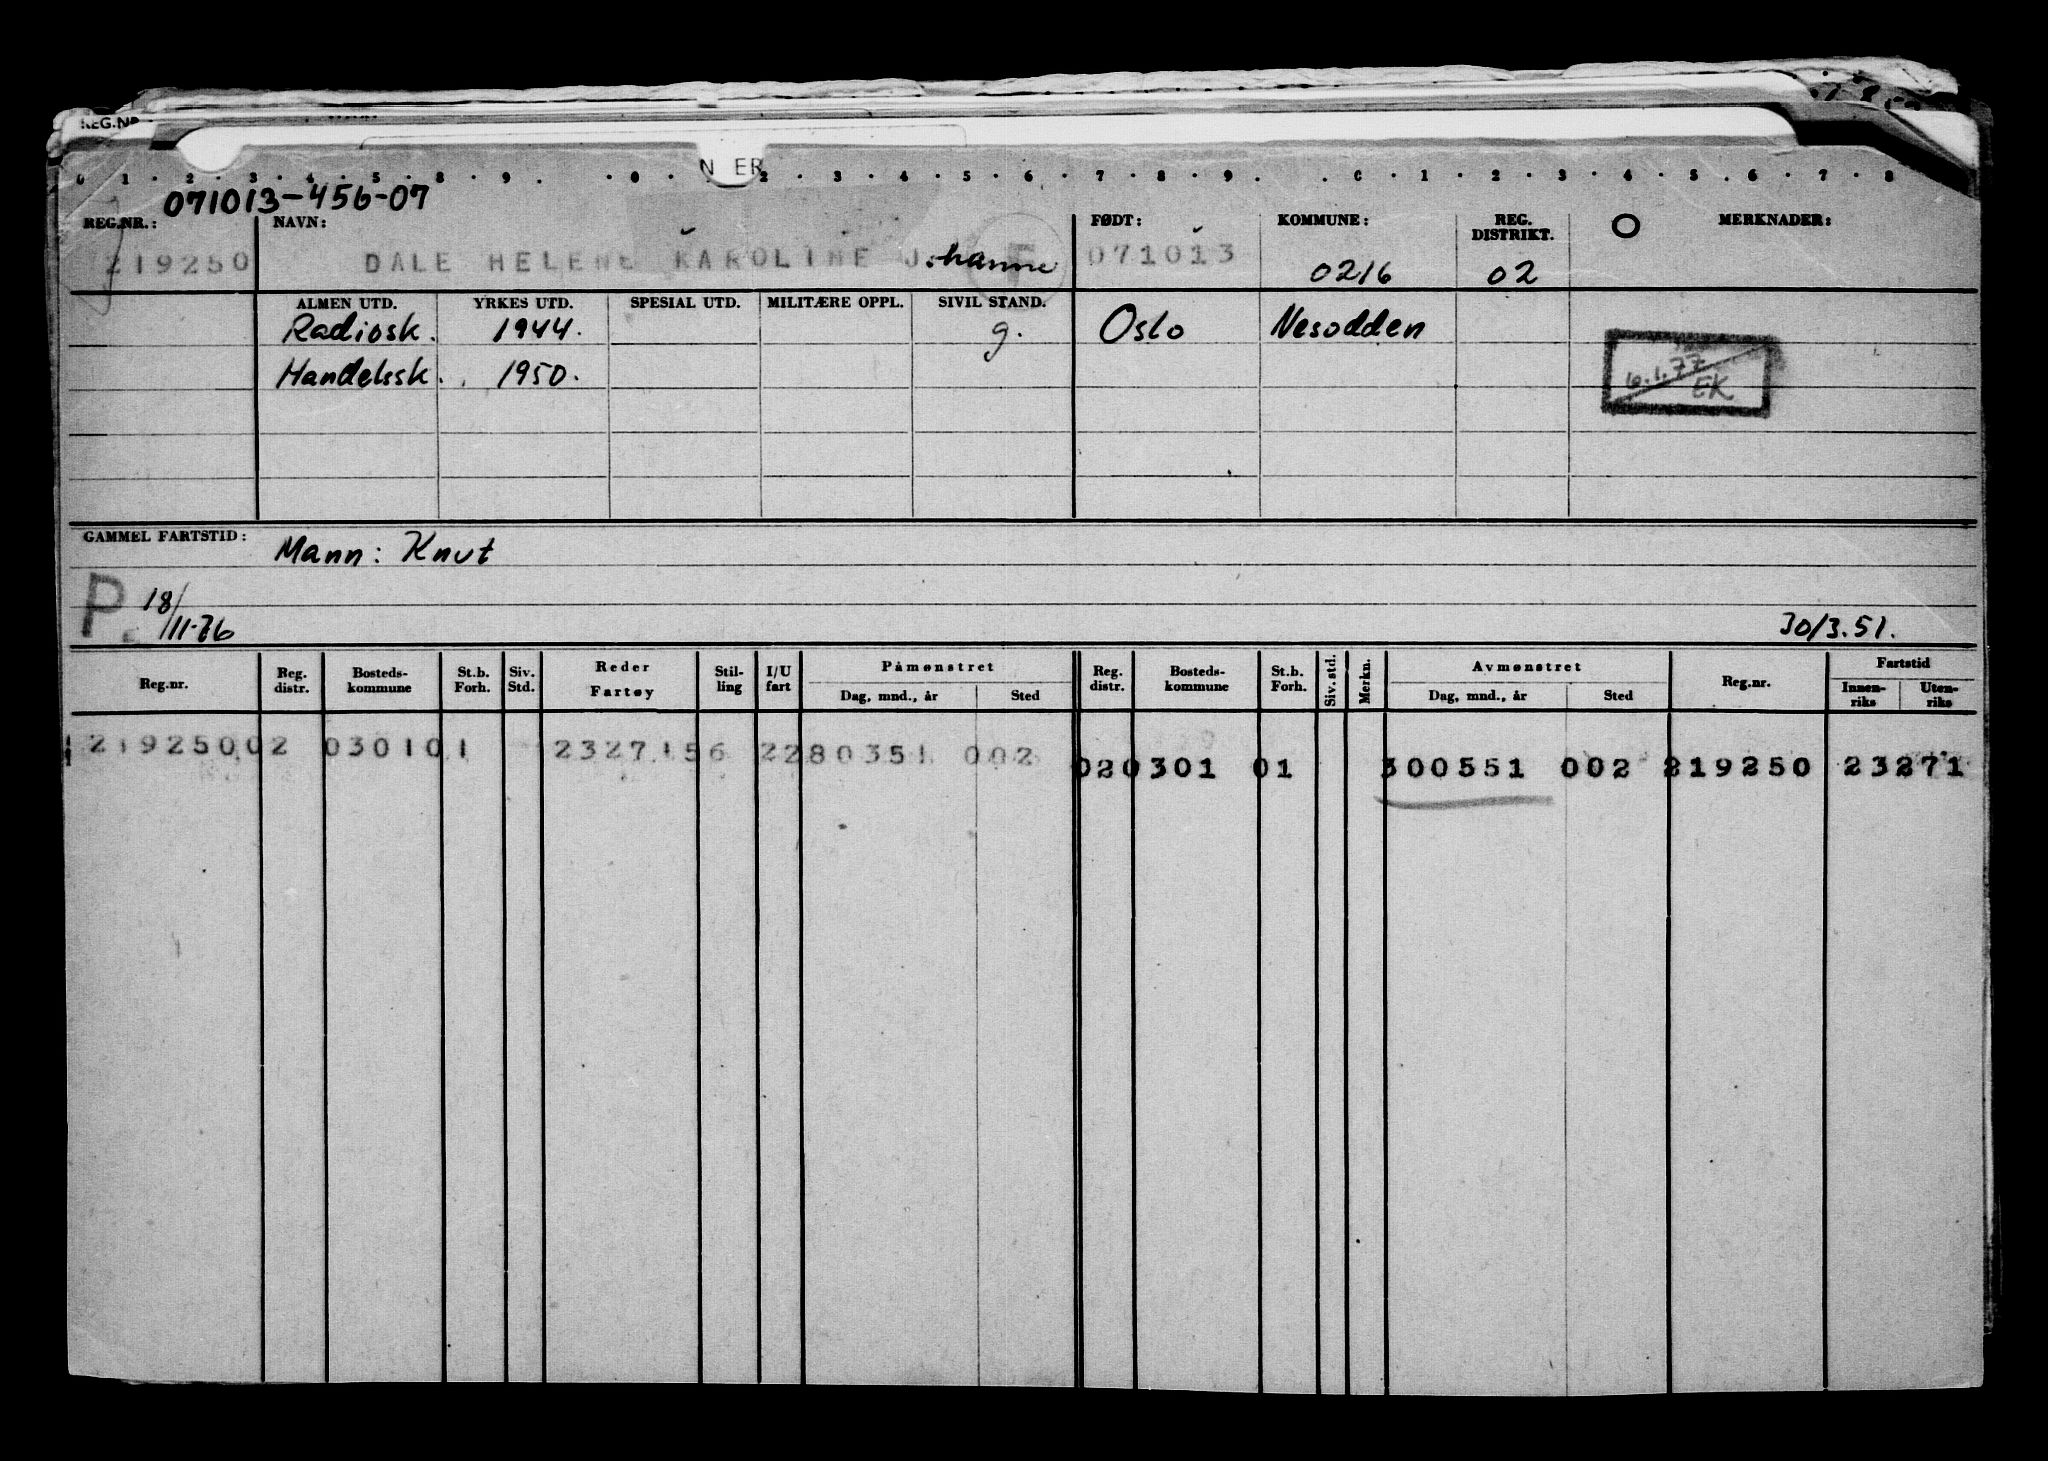 REG.NR
N ER
0 1 . 2 . 3 . 4 . 5 . 8 . 9 . . 0 . . 2 . 3 . 4 . 5 . 6 . 7 . 8 . 9 . . C . 1 . 2 . 3 . 4 . 5 . 6 . 7 . 8
071013-456-07
REG.NR.: NAVN: FØDT: KOMMUNE: REG. DISTRIKT. O MERKNADER:
219250 DALE HELENE KAROLINE Johanne F 071013 0216 02
ALMEN UTD. YRKES UTD. SPESIAL UTD. MILITÆRE OPPL. SIVIL STAND.
Radiosk. 1944. g. Oslo Nesodden
Handelssk. 1950. 6.1.77 EK
GAMMEL FARTSTID: Mann: Knut
P 18/11-76 30/3.51.
Reg.nr. Reg. distr. Bosteds-kommune St.b. Forh. Siv. Std. Reder Fartøy Stil-ling I/U fart Påmønstret Dag, mnd., år Sted Reg. distr. Bosteds-kommune St.b. Forh. Siv. std. Merkn. Avmønstret Dag, mnd., år Sted Reg.nr. Fartstid Innen-riks Uten-riks
219250 02 0301 01 2327156 2280351 002
02 0301 01 300551 002 219250 23271